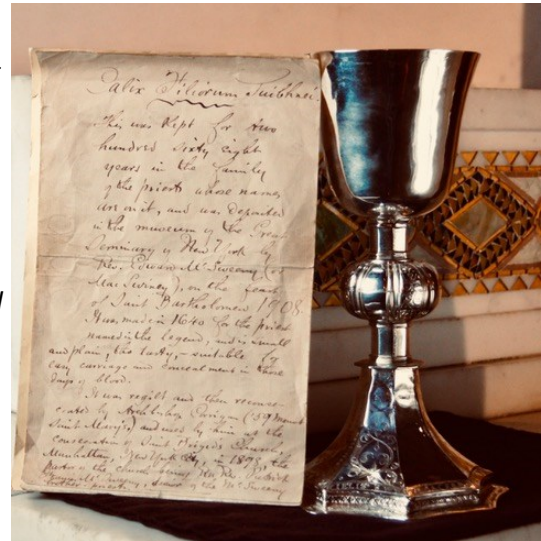 Calix Filiorum Suibhnei.
This was kept for two
hundred sixty eight
years in the family
of the priests whose names
are on it, and was deposited
in the museum of the Great
Seminary of New York by
Rev. Edward McSweeny (or
MacSwiney), on the feast
of Saint Bartholomew 1908.
It was made in 1640 for the priest
named in the legend, and is small
and plain, tho tasty, - suitable for
easy carriage and concealment in those
days of blood.
It was regilt and then reconse-
crated by Archbishop Corrigan ('59 Mount
Saint Mary's) and used by him at the
consecration of Saint Brigid's Church,
Manhattan, New York City, in 189 , the
pastor of the church being Rev. Patrick
McSweeny, of the McSweeny